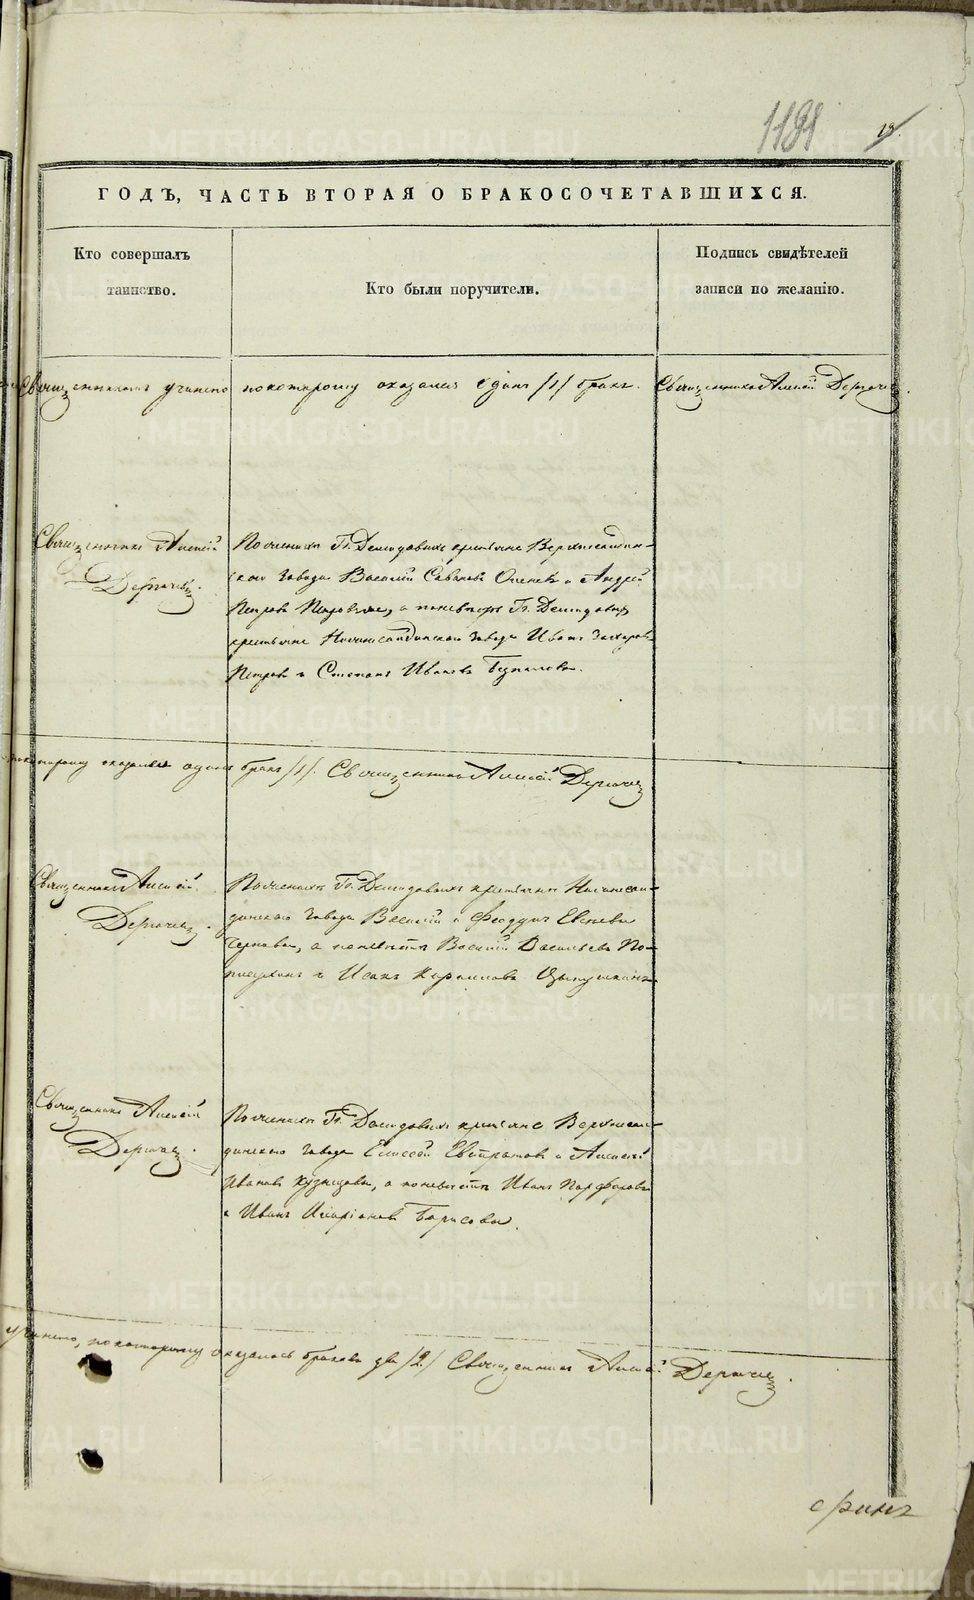 1191 19.
ГОДЪ, ЧАСТЬ ВТОРАЯ О БРАКОСОЧЕТАВШИХСЯ.
Кто совершалъ
таинство.
Кто были поручители.
Подпись свидѣтелей
записи по желанію.
Священникомъ учинено покоторому оказался одинъ /1/ бракъ. Священникъ Алексѣй Дергачевъ
Священникъ Алексѣй
Дергачевъ.
По женихѣ Гг. Демидовыхъ крестьяне Верхнесалдин-
скаго завода Василій Савиновъ и Андрей
Петровъ а по невѣстѣ Гг. Демидовыхъ
крестьяне Нижнесалдинскаго завода Иванъ Захаровъ
Петровъ и Степанъ Ивановъ
покоторому оказался одинъ бракъ /1/. Священникъ Алексѣй Дергачевъ
Священникъ Алексѣй
Дергачевъ.
По женихѣ Гг. Демидовыхъ крестьяне Нижнесал-
динскаго завода Василій и Феодоръ Евсѣевы
а по невѣстѣ Василій Васильевъ По-
и Исакъ Цыпушкинъ
Священникъ Алексѣй
Дергачевъ.
По женихѣ Гг. Демидовыхъ крестьяне Верхнесал-
динскаго завода Елисей Евстратовъ и Алексѣй
Ивановъ Кузнецовы, а по невѣстѣ Иванъ Парфеновъ
и Иванъ Иларіоновъ Борисовы.
учинено, покоторому оказалось браковъ два /2/ Священникъ Алексѣй Дергачевъ.